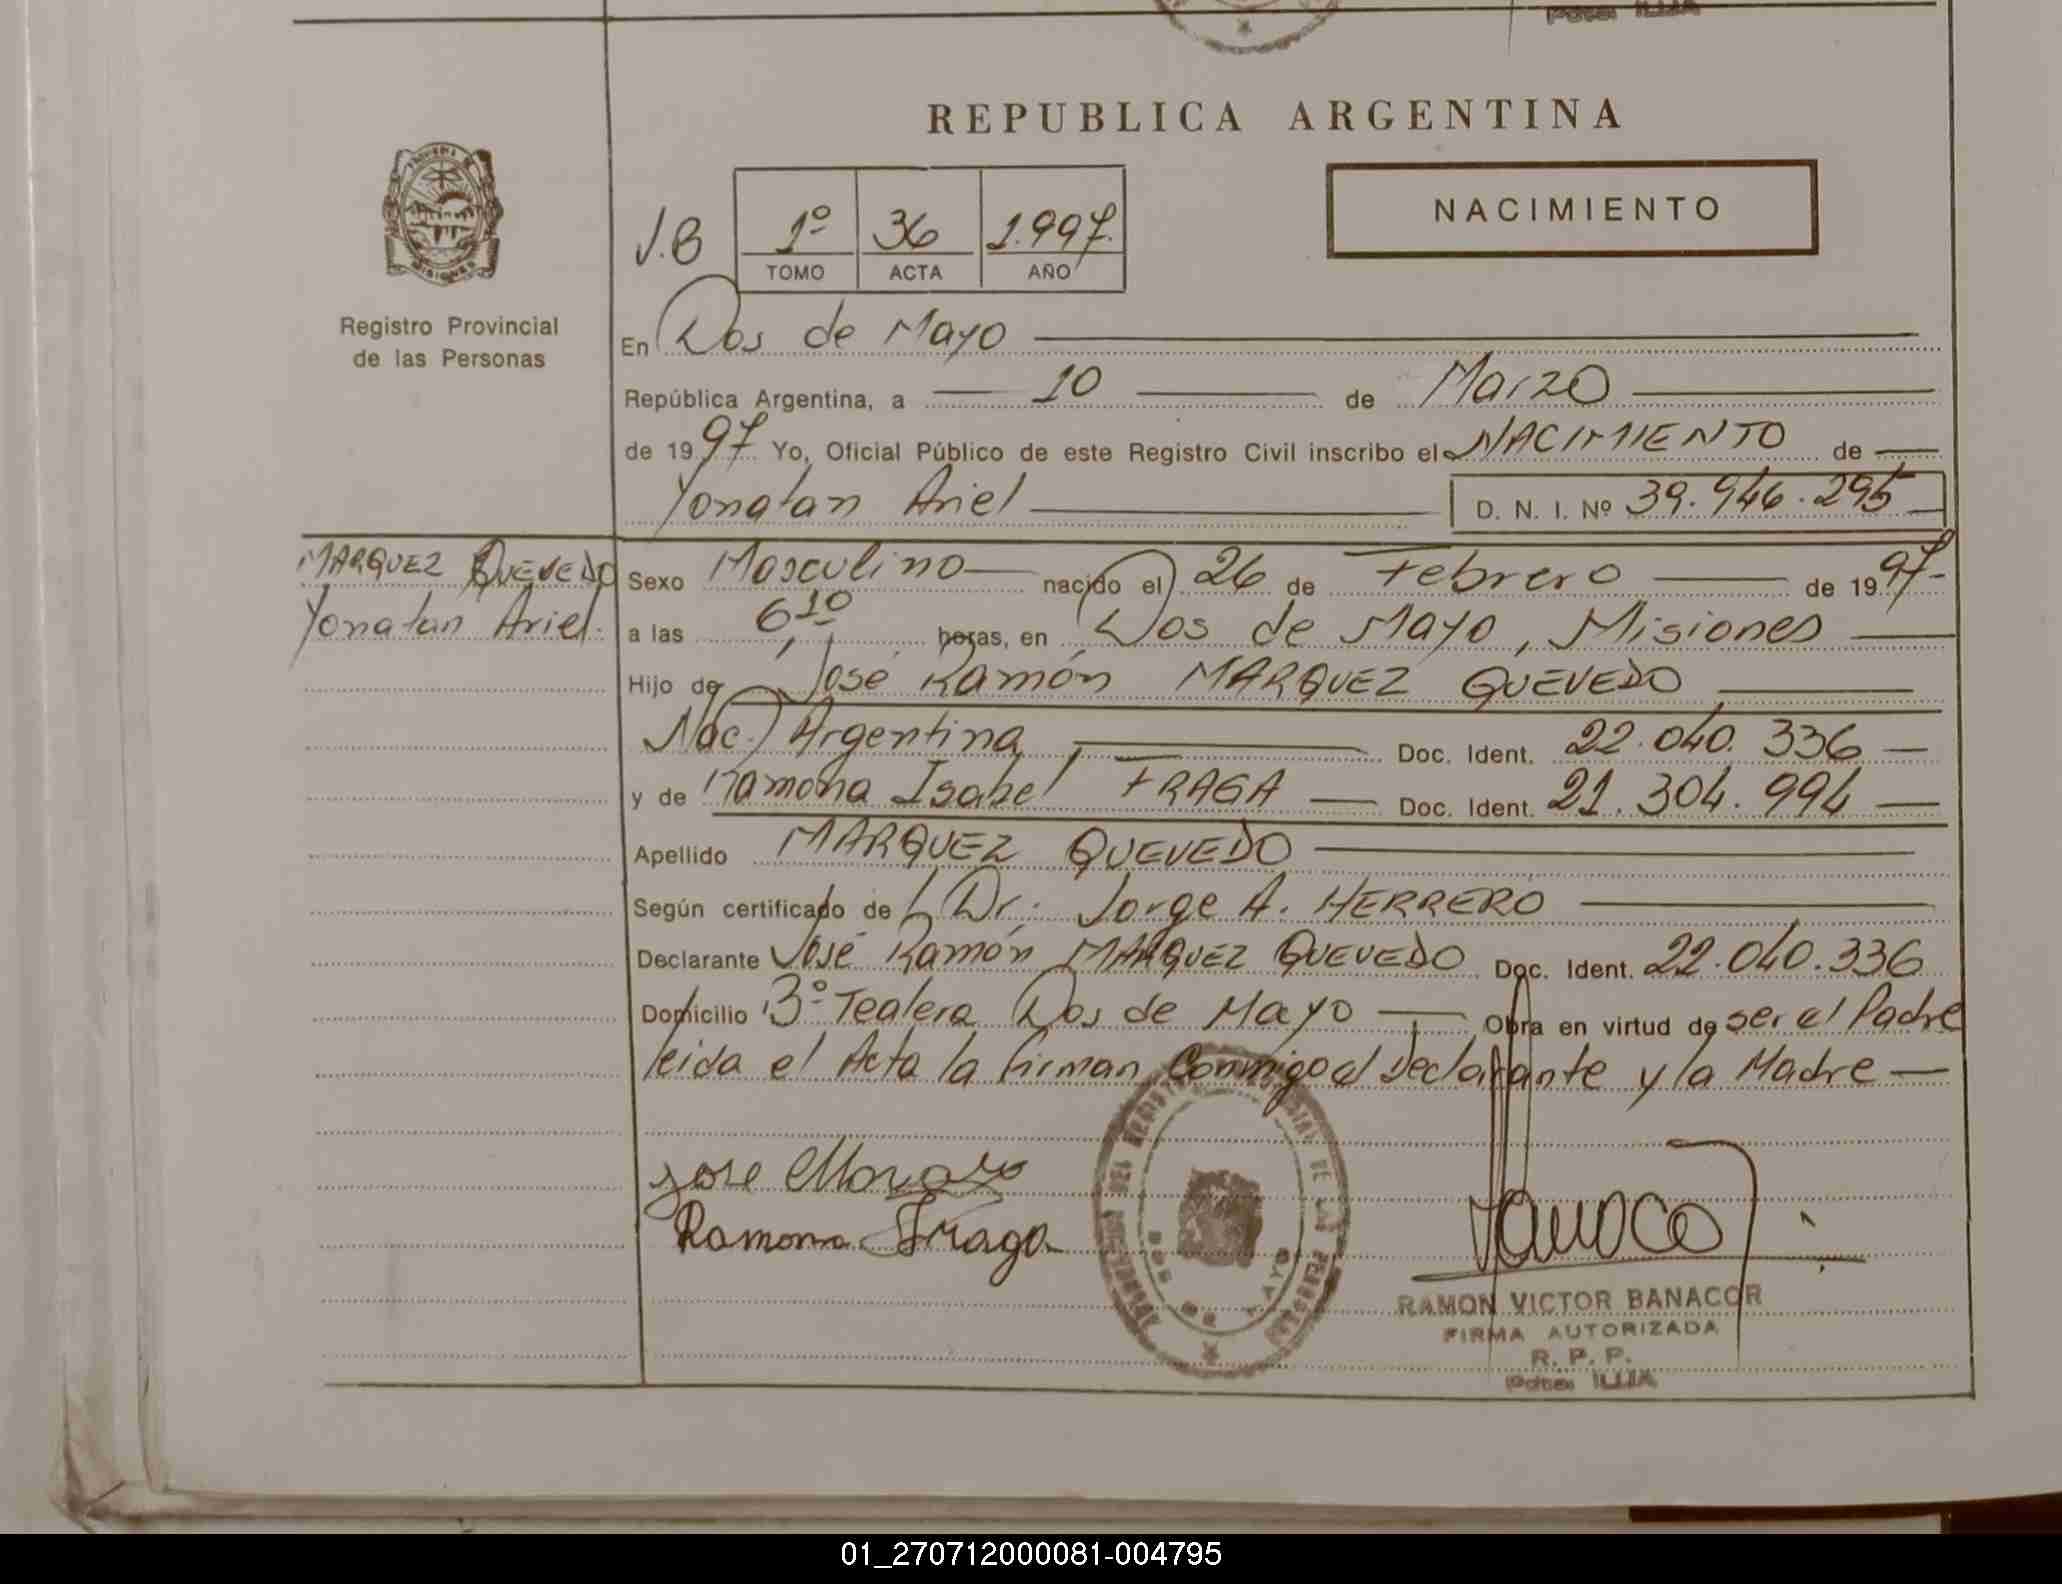 REPUBLICA ARGENTINA
NACIMIENTO
J.B
1º 36 1.997.
TOMO ACTA AÑO
Registro Provincial
de las Personas
En Dos de Mayo
República Argentina, a 10 de Marzo
de 1997 Yo, Oficial Público de este Registro Civil inscribo el NACIMIENTO de
Yonatan Ariel D. N. I. Nº 39.946.295
MARQUEZ QUEVEDO
Yonatan Ariel.
Sexo Masculino nacido el 26 de Febrero de 1997
a las 6,10 horas, en Dos de Mayo, Misiones
Hijo de José Ramón MARQUEZ QUEVEDO
Nac. Argentina, Doc. Ident. 22.040.336
y de Ramona Isabel FRAGA Doc. Ident. 21.304.994
Apellido MARQUEZ QUEVEDO
Según certificado de Dr: Jorge A. HERRERO
Declarante José Ramón MARQUEZ QUEVEDO Doc. Ident. 22.040.336
Domicilio Bº Tealera Dos de Mayo Obra en virtud de ser el Padre
leida el Acta la firman Conmigo el Declarante y la Madre
Jose
Ramona Fraga
DOS DE MAYO
RAMON VICTOR BANACOR
FIRMA AUTORIZADA
R. P. P.
01_270712000081-004795